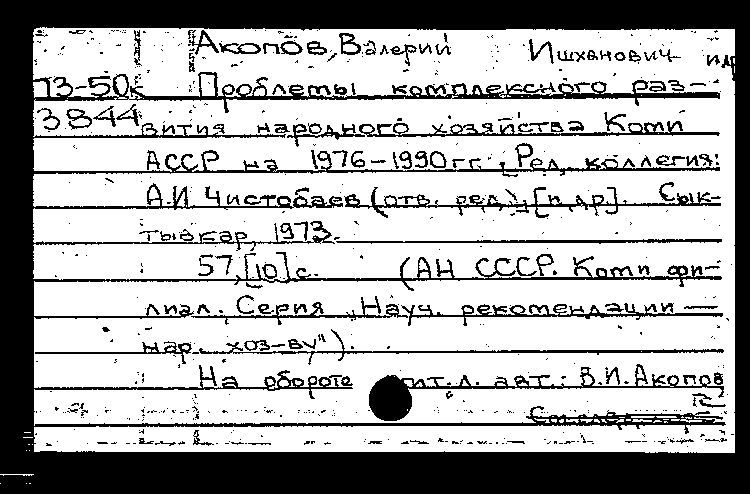 Акопов, Валерий Ишханович и др
73-50к Проблемы комплексного раз-
3844 вития народного хозяйства Коми
АССР на 1976-1990гг. [Ред. коллегия:
А.И. Чистобаев (отв. ред.), [и др]. Сык-
тывкар, 1973.
57, [10] с. (АН СССР. Коми фи-
лиал. Серия „Науч. рекомендации —
нар. хоз-ву").
На обороте тит. л. авт.: В.И. Акопов